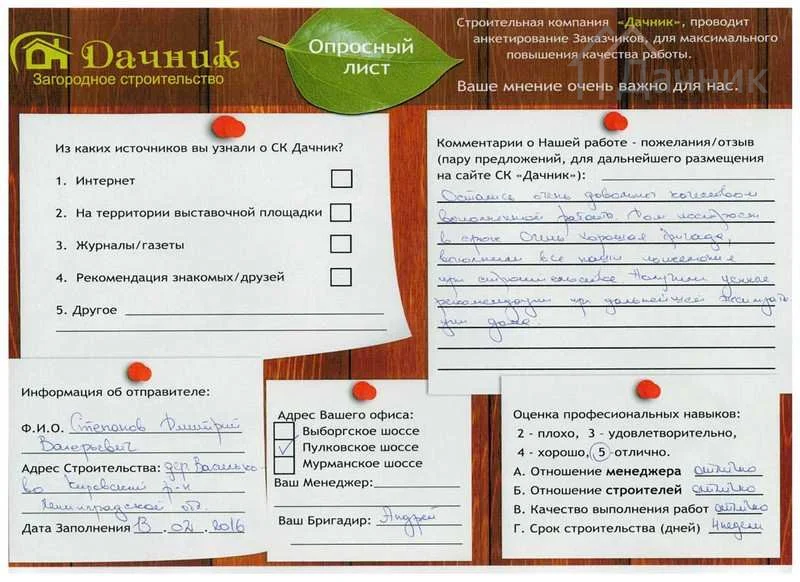 Дачник
Загородное строительство
Опросный
лист
Строительная компания «Дачник», проводит
анкетирование Заказчиков, для максимального
повышения качества работы.
Ваше мнение очень важно для нас.
Дачник
Из каких источников вы узнали о СК Дачник?
1. Интернет
2. На территории выставочной площадки
3. Журналы/газеты
4. Рекомендация знакомых/друзей
5. Другое
Комментарии о Нашей работе - пожелания/отзыв
(пару предложений, для дальнейшего размещения
на сайте СК «Дачник»):
Остались очень довольны качеством
выполненной работы. Дом построен
в срок Очень хорошая бригада,
выполнили все наши пожелания
при строительстве Получили ценные
рекомендации при дальнейшей эксплуата
ции дома.
Информация об отправителе:
Ф.И.О. Степанов Дмитрий
Валерьевич
Адрес Строительства: дер. Василько
во Кировский р-н
Ленинградской обл.
Дата Заполнения 13 .02 .2016
Адрес Вашего офиса:
Выборгское шоссе
Пулковское шоссе
Мурманское шоссе
Ваш Менеджер:
Ваш Бригадир: Андрей
Оценка профессиональных навыков:
2 - плохо, 3 - удовлетворительно,
4 - хорошо, 5 - отлично.
А. Отношение менеджера отлично
Б. Отношение строителей отлично
В. Качество выполнения работ отлично
Г. Срок строительства (дней) 4 недели